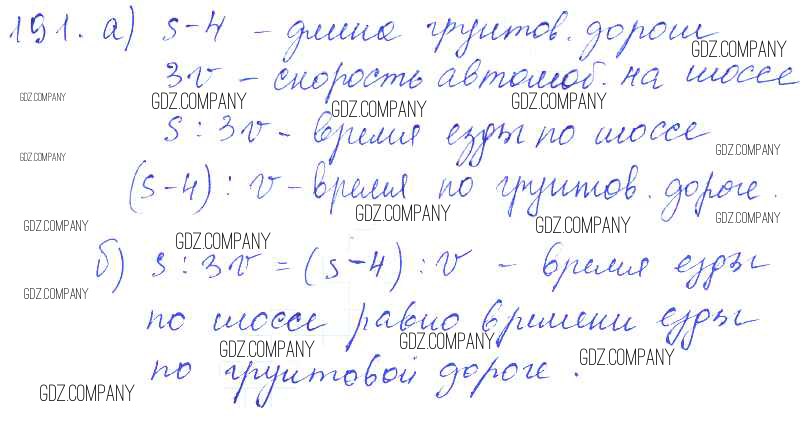 191. а) s-4 - длина грунтов. дороги
GDZ.COMPANY
3v - скорость автомоб. на шоссе
GDZ.COMPANY GDZ.COMPANY GDZ.COMPANY GDZ.COMPANY
s : 3v - время езды по шоссе
GDZ.COMPANY GDZ.COMPANY
(s-4) : v - время по грунтов. дороге.
GDZ.COMPANY GDZ.COMPANY GDZ.COMPANY GDZ.COMPANY
GDZ.COMPANY
б) s : 3v = (s-4) : v - время езды
GDZ.COMPANY
по шоссе равно времени езды
GDZ.COMPANY GDZ.COMPANY GDZ.COMPANY
по грунтовой дороге.
GDZ.COMPANY